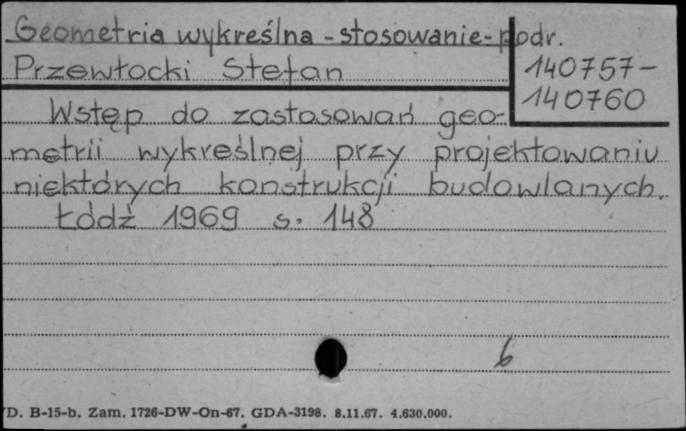 Geometria wykreślna - stosowanie - podr.
Przewłocki Stefan
140757-
140760
Wstęp do zastosowań geo-
metrii wykreślnej przy projektowaniu
niektórych konstrukcji budowlanych.
Łódź 1969 s. 148
6
D. B-15-b. Zam. 1726-DW-On-67. GDA-3198. 8.11.67. 4.630.000.